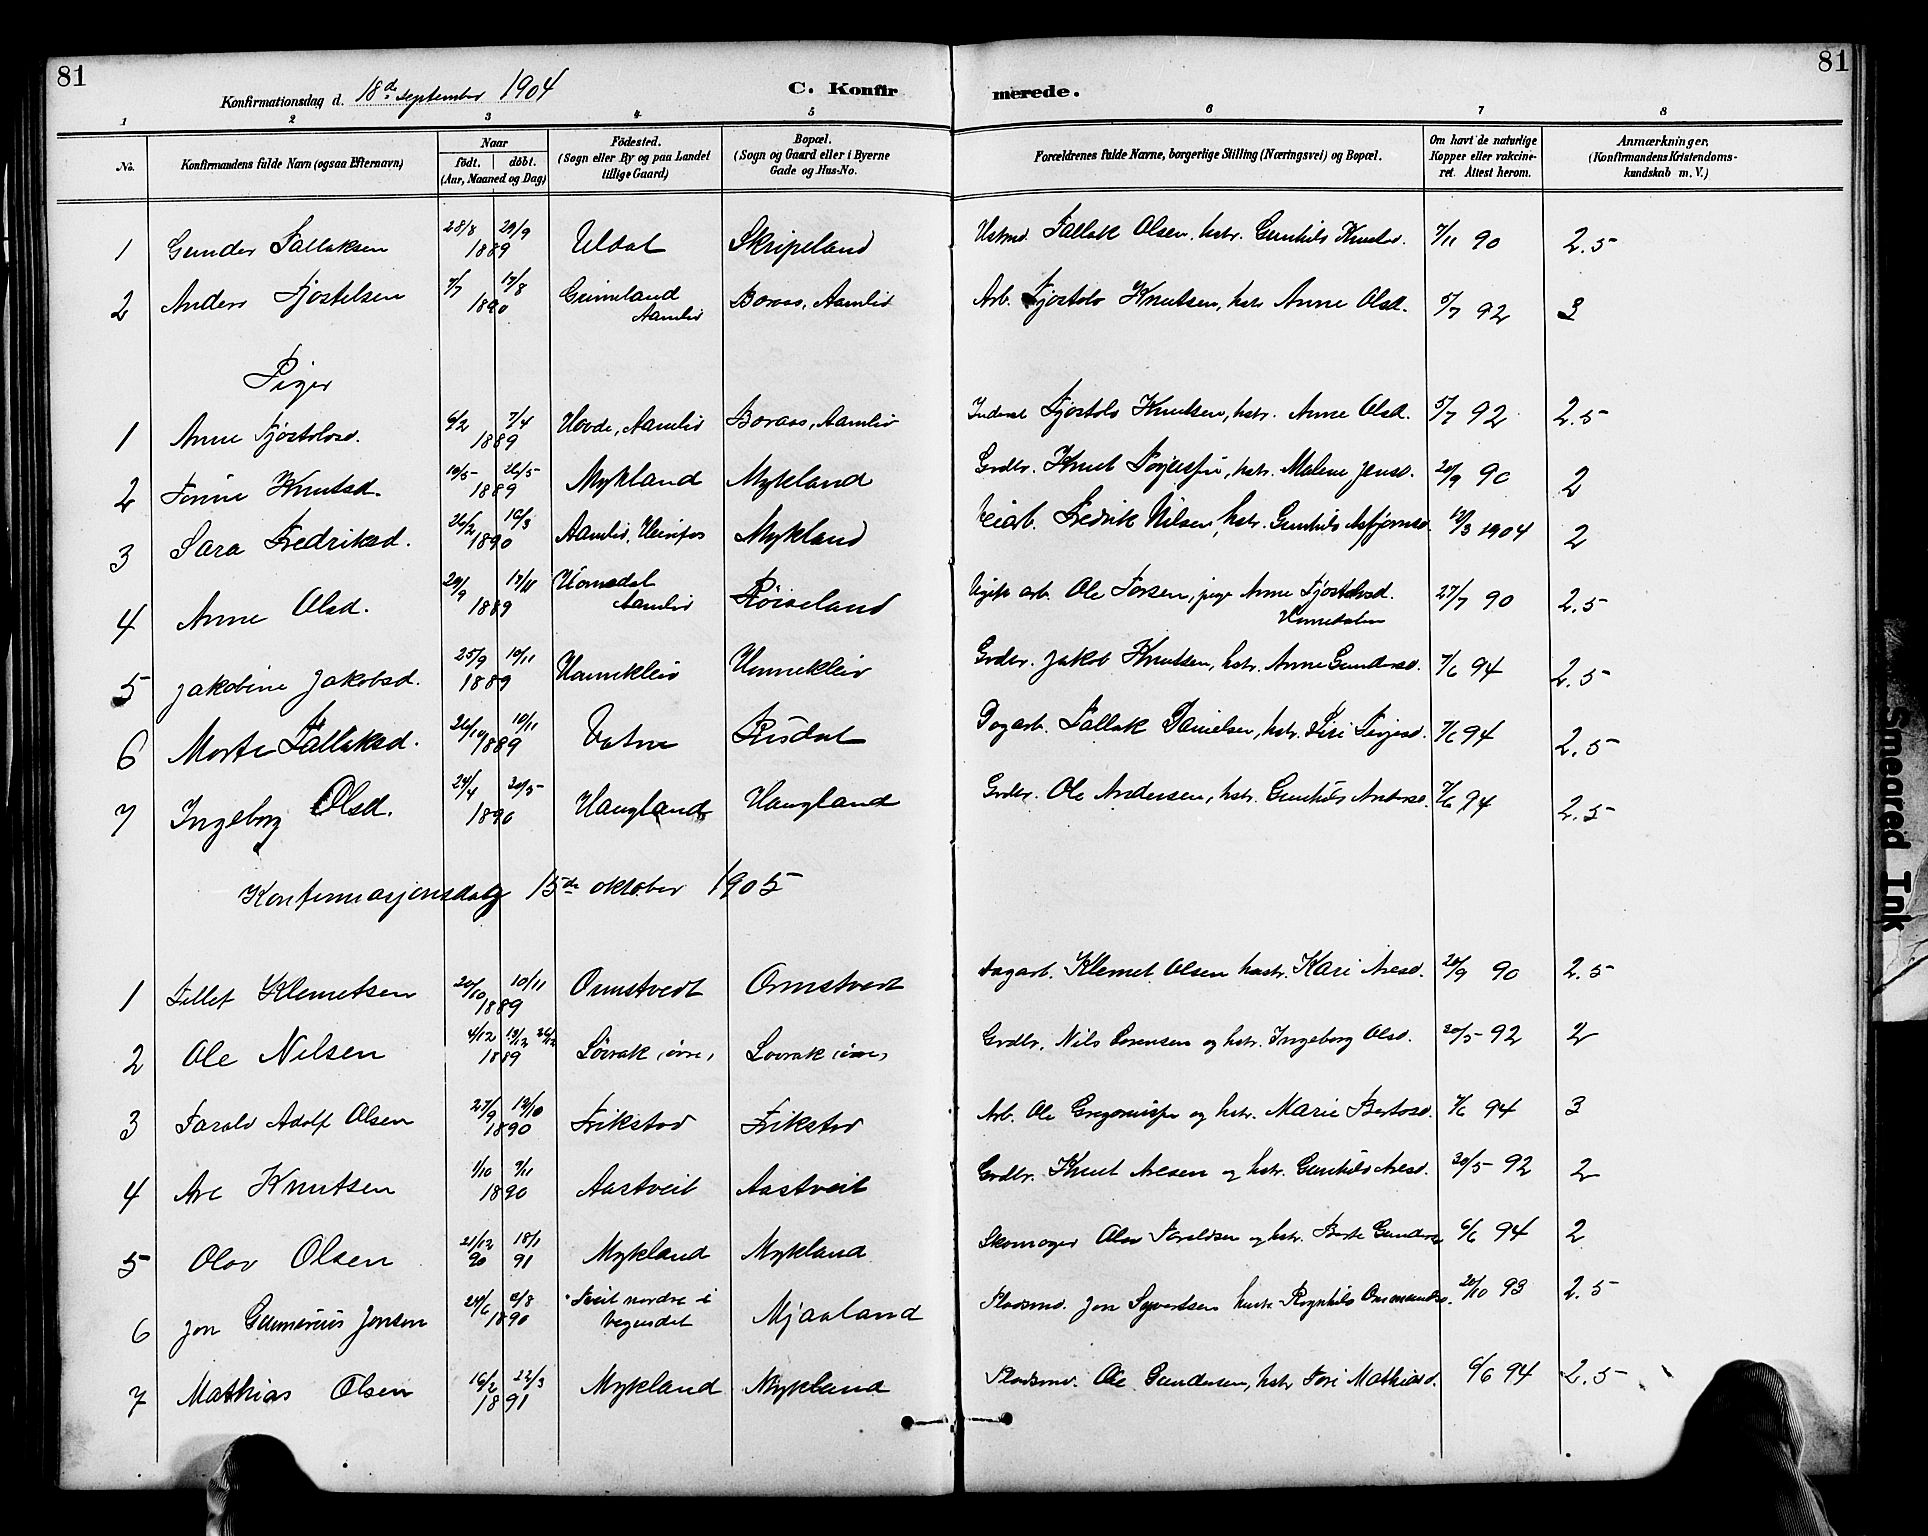 81
81
Konfirmationsdag d. 18de september 1904
C. Konfirmerede.
1 2 3 4 5 6 7 8
No. | Konfirmandens fulde Navn (ogsaa Efternavn) | Naar født. | døbt. (Aar, Maaned og Dag) | Fødested. (Sogn eller By og paa Landet tillige Gaard) | Bopæl. (Sogn og Gaard eller i Byerne Gade og Hus-No. | Forældrenes fulde Navne, borgerlige Stilling (Næringsvei) og Bopæl. | Om havt de naturlige Kopper eller vakcineret. Attest herom. | Anmærkninger, (Konfirmandens Kristendomskundskab m. V.)
1 Gunder Tallaksen 28/8 29/9 1889 Uldal Skripeland Tallak Olsen, hstr. Gunhild Knutsd. 7/11 90 2.5
2 Anders Fjostolsen 7/7 17/8 1890 Grimeland Aamlid Boraas, Aamlid Arb. Fjostolv Knutsen, hstr Anne Olsd. 5/7 92 3
Piger
1 Anne Fjostolvsd. 6/2 7/4 1889 Hovde, Aamlid Boraas, Aamlid Fjostolv Knutsen, hstr. Anne Olsd. 5/7 92 2.5
2 Tomine Knutsd. 19/5 26/5 1889 Mykland Mykland Grdbr. Knut Terjesen, hstr. Malene Jensd. 20/9 90 2
3 Sara Fredriksd. 26/2 16/3 1890 Aamlid, Mykland Veiarb. Fredrik Nilsen, hstr. Gunhild Asbjørnsd. 12/3 1904 2
4 Anne Olsd. 29/9 17/11 1889 Homdal Aamlid Røiseland Ugift arb. Ole Torsen, pige Anne Fjostolvsd. 27/7 90 2.5
5 Jakobine Jakobsd. 25/9 10/11 1889 Hunnekleiv Hunnekleiv Grdbr. Jakob Knutsen, hstr. Anne Gundersd. 7/6 94 2.5
6 Marte Tallaksd. 26/10 10/11 1889 Vatne Risdal Dagarb. Tallak Danielsen, hstr. Siri Terjesd. 7/6 94 2.5
7 Ingeborg Olsd. 24/4 20/5 1890 Haugland Haugland Grdbr. Ole Andersen, hstr. Gunhild Andersd. 7/6 94 2.5
Konfirmasjonsdag 15de oktober 1905
1 Tellef Klemetsen 20/10 10/11 1889 Ormstvedt Ormstvedt Dagarb. Klemet Olsen hustr. Kari Aresd. 20/9 90 2.5
2 Ole Nilsen 4/12 26/12 1889 Løvrak (øvre) Løvrak (øvre) Grdbr. Nils Sorensen og hstr. Ingeborg Olsd. 20/5 92 2
3 Tarald Adolf Olsen 27/9 19/10 1890 Frikstad Frikstad Arb. Ole Gregoriusen og hstr. Marie Bertosd. 7/6 94 3
4 Are Knutsen 1/10 9/11 1890 Aastveit Aastveit Grdbr. Knut Aresen og hstr. Gunhild Aresd. 30/5 92 2
5 Olav Olsen 21/12 90 18/1 91 Mykland Mykland Skomager Olav Taraldsen og hstr. Berte Gundersd. 6/6 94 2
6 Jon Gunerius Jensen 24/6 1890 Tveit nordre i Vegusdal Mjaaland Pladsmd. Jon Syvertsen hustr Ragnhild Ommundsd. 20/10 93 2.5
7 Mathias Olsen 16/2 22/3 1891 Mykland Mykland Pladsmd. Ole Gundersen, hstr Tore Mathiasd. 6/6 94 2.5
Smeared Ink